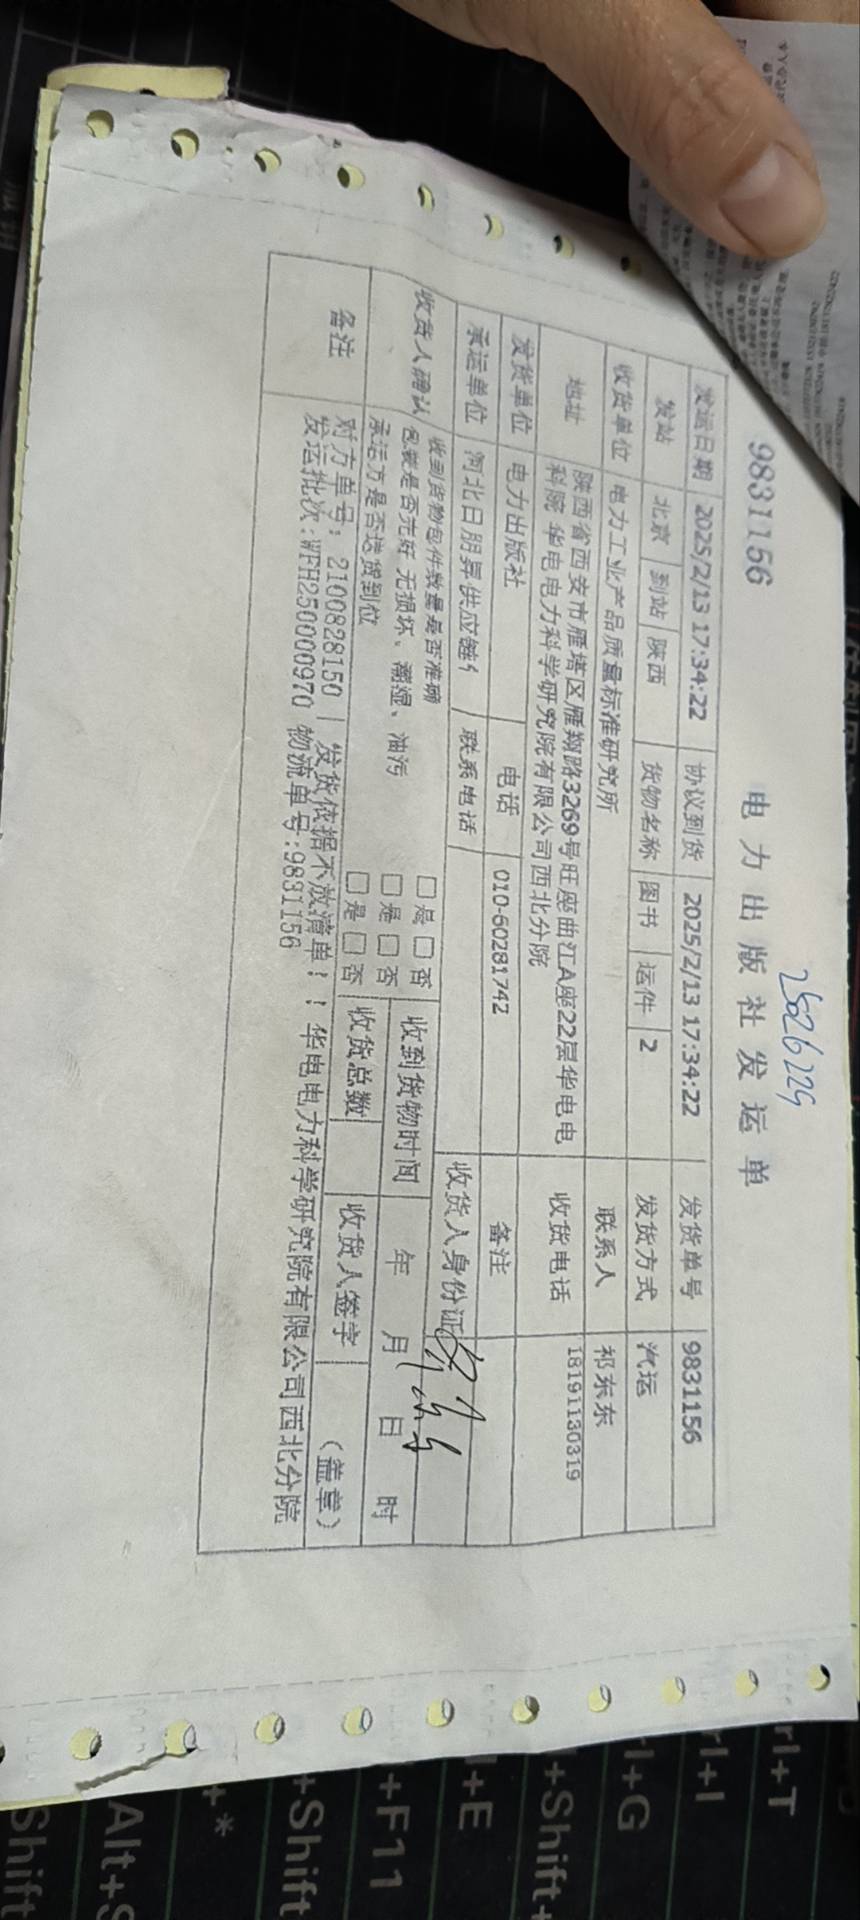 25026229
9831156 电力出版社发运单
发运日期 2025/2/13 17:34:22 协议到货 2025/2/13 17:34:22 发货单号 9831156
发站 北京 到站 陕西 货物名称 图书 运件 2 发货方式 汽运
收货单位 电力工业产品质量标准研究所 联系人 祁东东
地址 陕西省西安市雁塔区雁翔路3269号旺座曲江A座22层华电电 收货电话 18191130319
科院 华电电力科学研究院有限公司西北分院
发货单位 电力出版社 电话 010-60281742 备注
承运单位 河北日朋昇供应链 联系电话 收货人身份证
收货人确认 收到货物包件数量是否准确 □是□否 收到货物时间 年 月 日 时
包装是否完好 无损坏、潮湿、油污 □是□否
承运方是否送货到位 □是□否 收货总数 收货人签字 (盖章)
备注 对方单号：2100828150 | 发货依据不放清单！！华电电力科学研究院有限公司西北分院
发运批次:WFH2500000970 物流单号:9831156
rl+T
rl+I
l+G
+Shift+
l+E
+F11
+Shift
+*
Alt+S
Shift